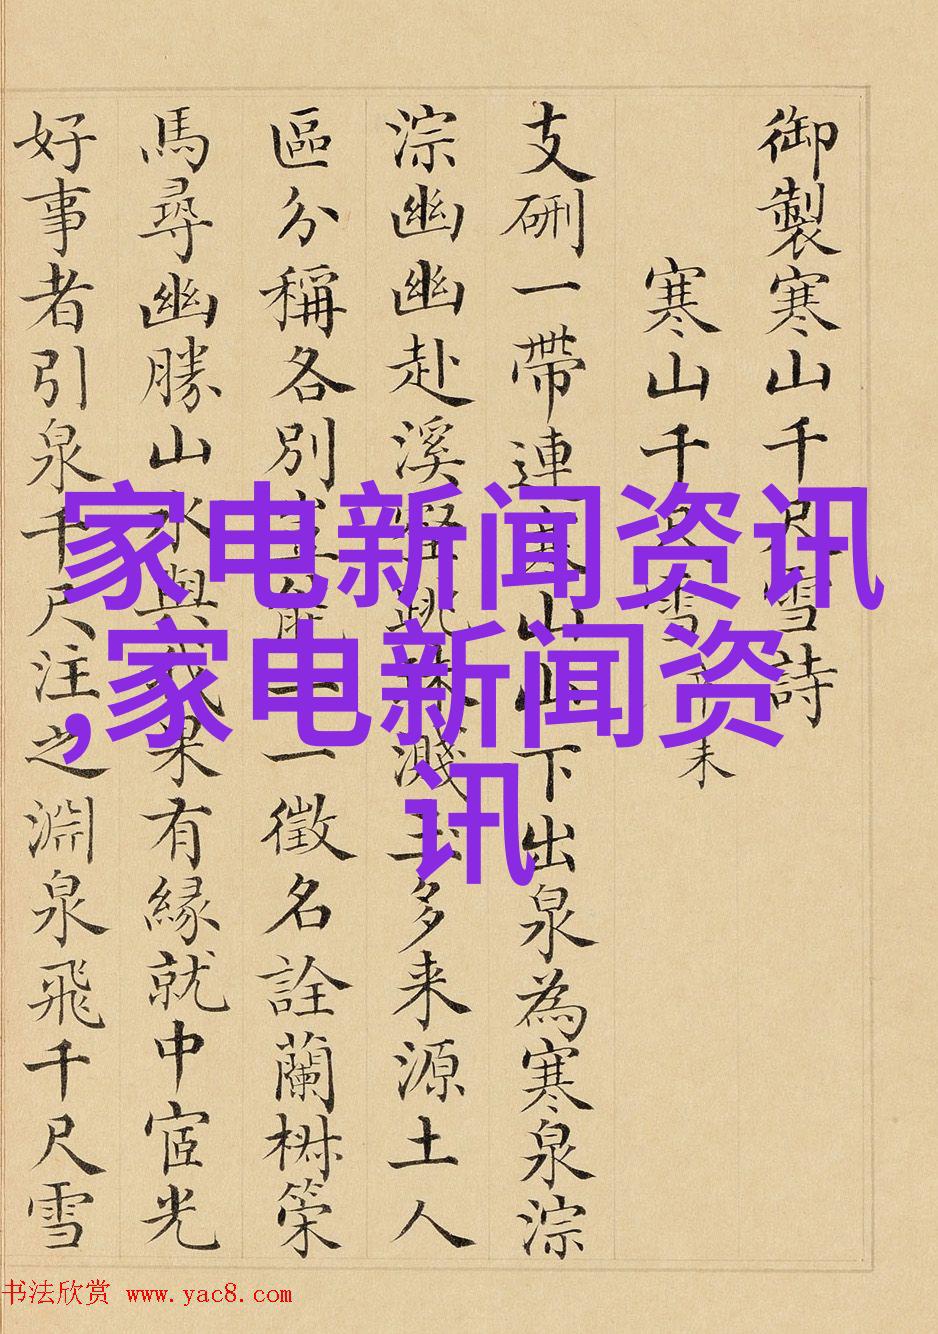 御製寒山千尺雪詩
寒山千尺雪 未
支硎一帶連寒山山下出泉為寒泉淙
淙幽幽赴溪壑跳珠濺玉多来源土人
區分稱各別豈能一一徵名詮蘭策
馬尋幽勝山水與我果有縁就中宧光
好事者引泉千尺注之淵泉飛千尺雪
家电新闻资讯
,家电新闻资
讯
书法欣赏 www.yac8.com